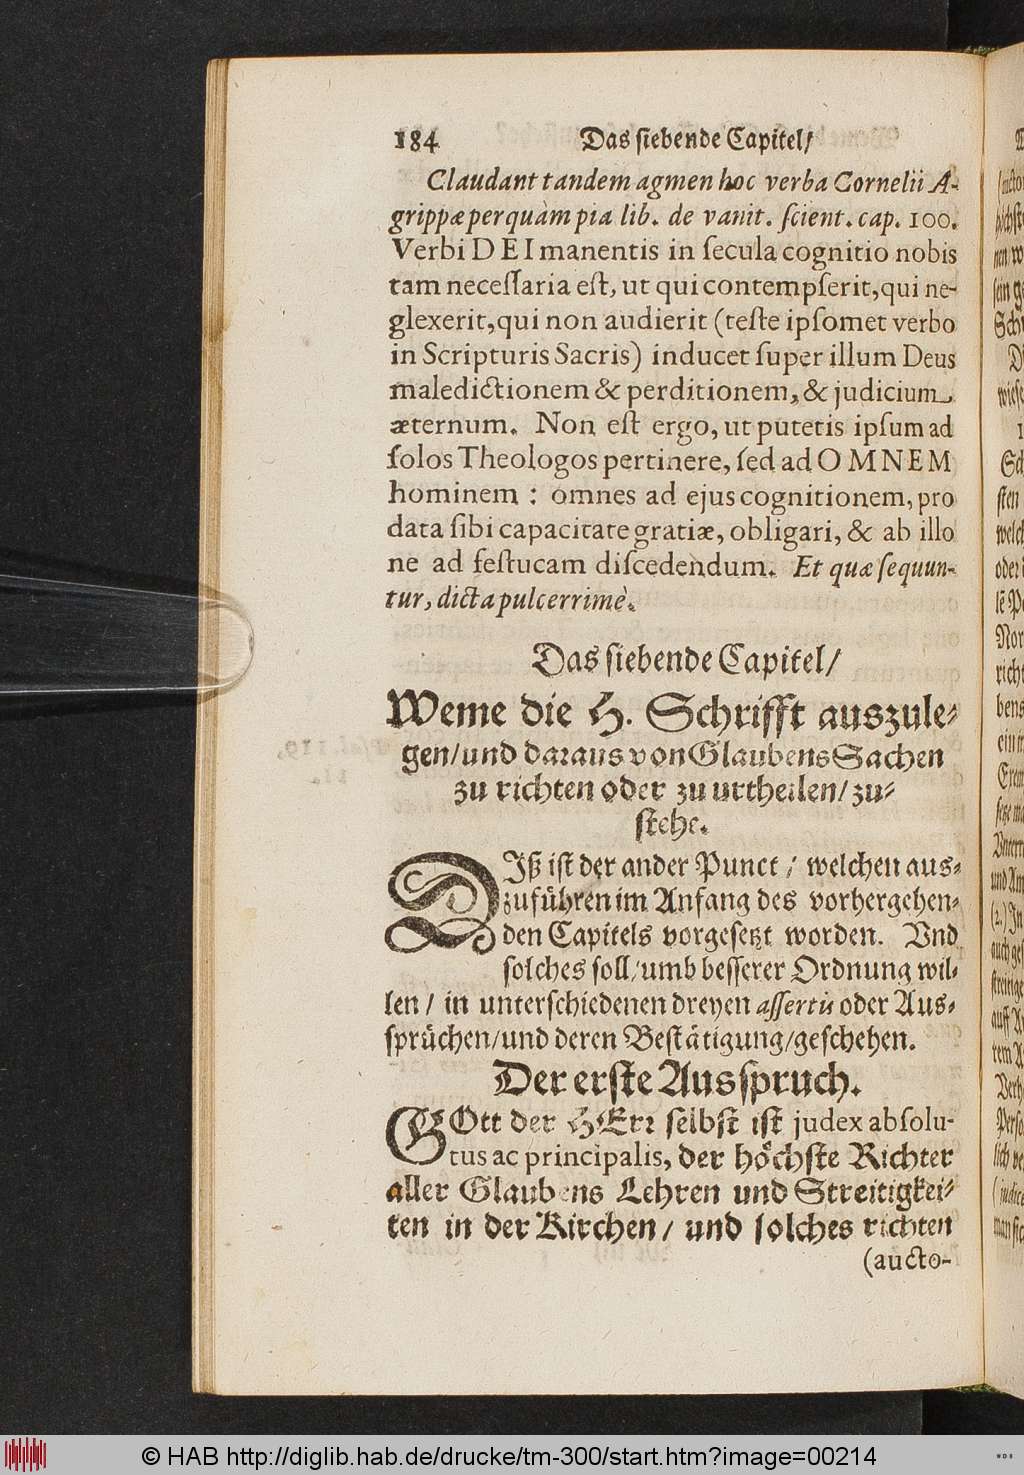 184 Das siebende Capitel/
Claudant tandem agmen hoc verba Cornelii A-
grippæ perquàm pia lib. de vanit. ſcient. cap. 100.
Verbi DEI manentis in ſecula cognitio nobis
tam neceſſaria eſt, ut qui contempſerit, qui ne-
glexerit, qui non audierit (teſte ipſomet verbo
in Scripturis Sacris) inducet ſuper illum Deus
maledictionem & perditionem, & judicium
æternum. Non eſt ergo, ut putetis ipſum ad
ſolos Theologos pertinere, ſed ad OMNEM
hominem : omnes ad ejus cognitionem, pro
data ſibi capacitate gratiæ, obligari, & ab illo
ne ad feſtucam diſcedendum. Et quæ ſequun-
tur, dicta pulcerrimè.
Das ſiebende Capitel/
Weme die H. Schrifft auszule-
gen/und daraus von Glaubens Sachen
zu richten oder zu urtheilen/ zu-
ſtehe.
DIß iſt der ander Punct / welchen aus-
zuführen im Anfang des vorhergehen-
den Capitels vorgeſetzt worden. Vnd
ſolches ſoll/umb beſſerer Ordnung wil-
len / in unterſchiedenen dreyen aſſertis oder Aus-
ſprüchen/und deren Beſtätigung/geſchehen.
Der erſte Ausſpruch.
GOtt der HErr ſelbſt iſt judex abſolu-
tus ac principalis, der höchſte Richter
aller Glaubens Lehren und Streitigkei-
ten in der Kirchen / und ſolches richten
(aucto-
© HAB http://diglib.hab.de/drucke/tm-300/start.htm?image=00214